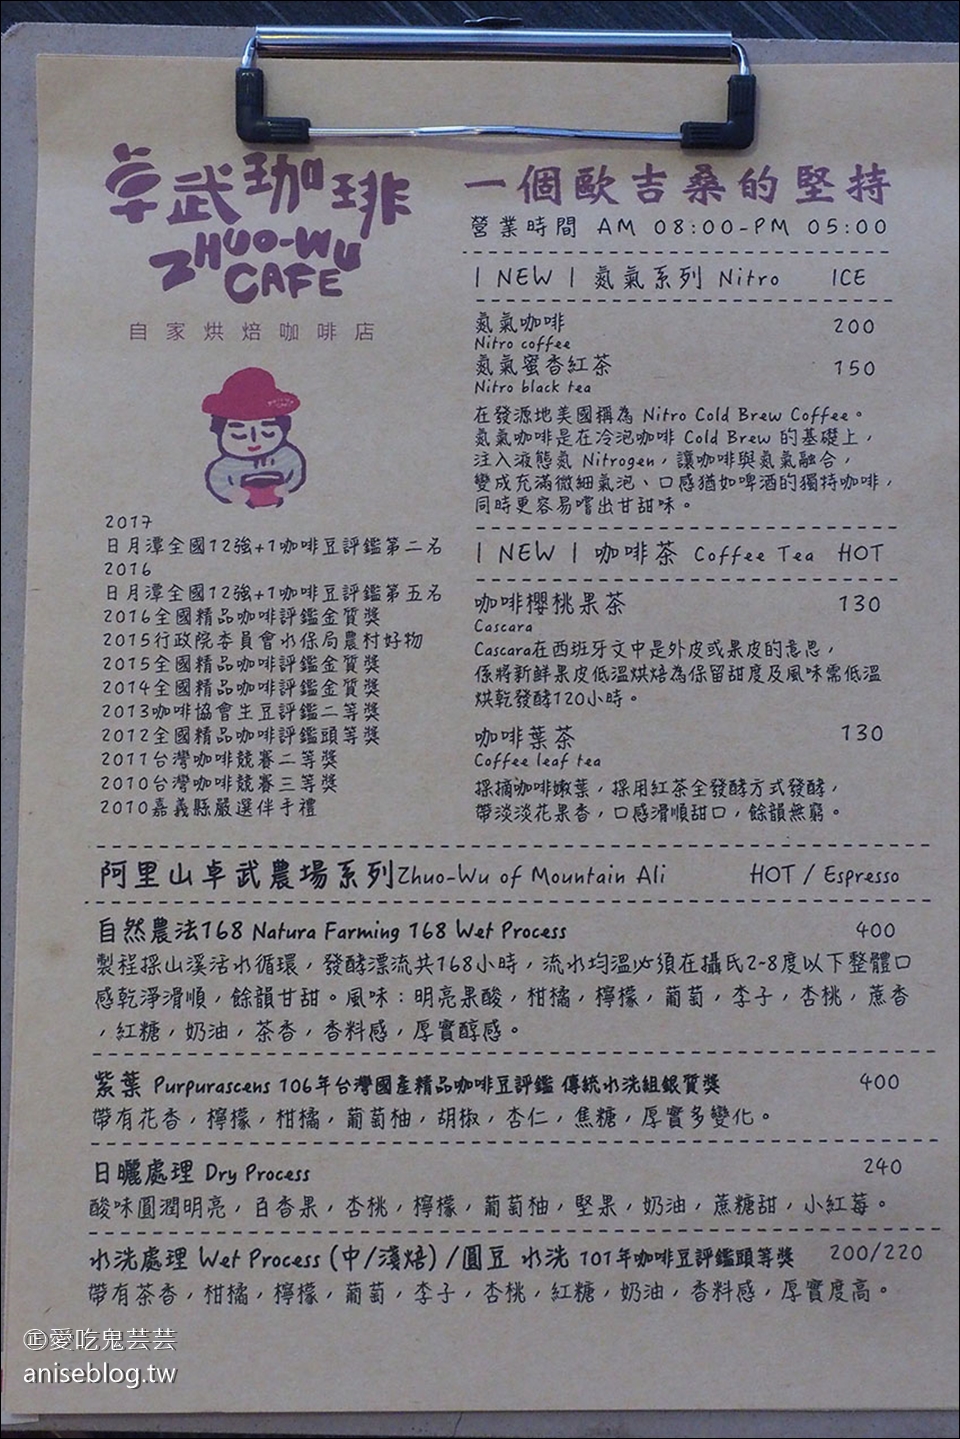 卓武珈琲
ZHUO-WU
CAFE
自家烘焙咖啡店
2017
日月潭全國12強+1咖啡豆評鑑第二名
2016
日月潭全國12強+1咖啡豆評鑑第五名
2016全國精品咖啡評鑑金質獎
2015行政院委員會水保局農村好物
2015全國精品咖啡評鑑金質獎
2014全國精品咖啡評鑑金質獎
2013咖啡協會生豆評鑑二等獎
2012全國精品咖啡評鑑頭等獎
2011台灣咖啡競賽二等獎
2010台灣咖啡競賽三等獎
2010嘉義縣嚴選伴手禮
一個歐吉桑的堅持
營業時間 AM 08:00-PM 05:00
| NEW | 氮氣系列 Nitro ICE
氮氣咖啡 200
Nitro coffee
氮氣蜜香紅茶 150
Nitro black tea
在發源地美國稱為 Nitro Cold Brew Coffee。
氮氣咖啡是在冷泡咖啡 Cold Brew 的基礎上，
注入液態氮 Nitrogen，讓咖啡與氮氣融合，
變成充滿微細氣泡、口感猶如啤酒的獨特咖啡，
同時更容易嚐出甘甜味。
| NEW | 咖啡茶 Coffee Tea HOT
咖啡櫻桃果茶 130
Cascara
Cascara在西班牙文中是外皮或果皮的意思，
係將新鮮果皮低溫烘焙為保留甜度及風味需低溫
烘乾發酵120小時。
咖啡葉茶 130
Coffee leaf tea
採摘咖啡嫩葉，採用紅茶全發酵方式發酵，
帶淡淡花果香，口感滑順甜口，餘韻無窮。
阿里山卓武農場系列Zhuo-Wu of Mountain Ali HOT / Espresso
自然農法168 Natura Farming 168 Wet Process 400
製程採山溪活水循環，發酵漂流共168小時，流水均溫必須在攝氏2-8度以下整體口
感乾淨滑順，餘韻甘甜。風味：明亮果酸，柑橘，檸檬，葡萄，李子，杏桃，蔗香
，紅糖，奶油，茶香，香料感，厚實醇感。
紫葉 Purpurascens 106年台灣國產精品咖啡豆評鑑 傳統水洗組銀質獎 400
帶有花香，檸檬，柑橘，葡萄柚，胡椒，杏仁，焦糖，厚實多變化。
日曬處理 Dry Process 240
酸味圓潤明亮，百香果，杏桃，檸檬，葡萄柚，堅果，奶油，蔗糖甜，小紅莓。
水洗處理 Wet Process (中/淺焙) /圓豆 水洗 101年咖啡豆評鑑頭等獎 200/220
帶有茶香，柑橘，檸檬，葡萄，李子，杏桃，紅糖，奶油，香料感，厚實度高。
㊣愛吃鬼芸芸
aniseblog.tw